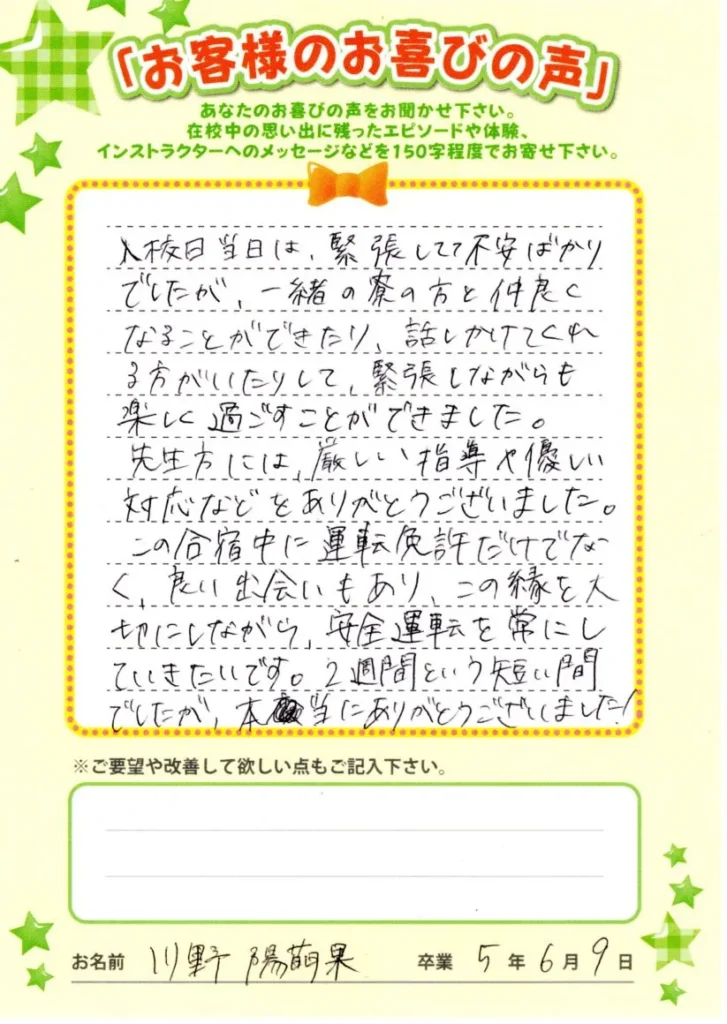 「お客様のお喜びの声」
あなたのお喜びの声をお聞かせ下さい。
在校中の思い出に残ったエピソードや体験、
インストラクターへのメッセージなどを150字程度でお寄せ下さい。
入校日当日は、緊張してて不安ばかり
でしたが、一緒の寮の方と仲良く
なることができたり、話しかけてくれ
る方がいたりして、緊張しながらも
楽しく過ごすことができました。
先生方には、厳しい指導や優しい
対応などをありがとうございました。
この合宿中に運転免許だけでな
く、良い出会いもあり、この縁を大
切にしながら、安全運転を常にし
ていきたいです。2週間という短い間
でしたが、本当にありがとうございました!
※ご要望や改善して欲しい点もご記入下さい。
お名前 川野 陽萌果 卒業 5年6月9日